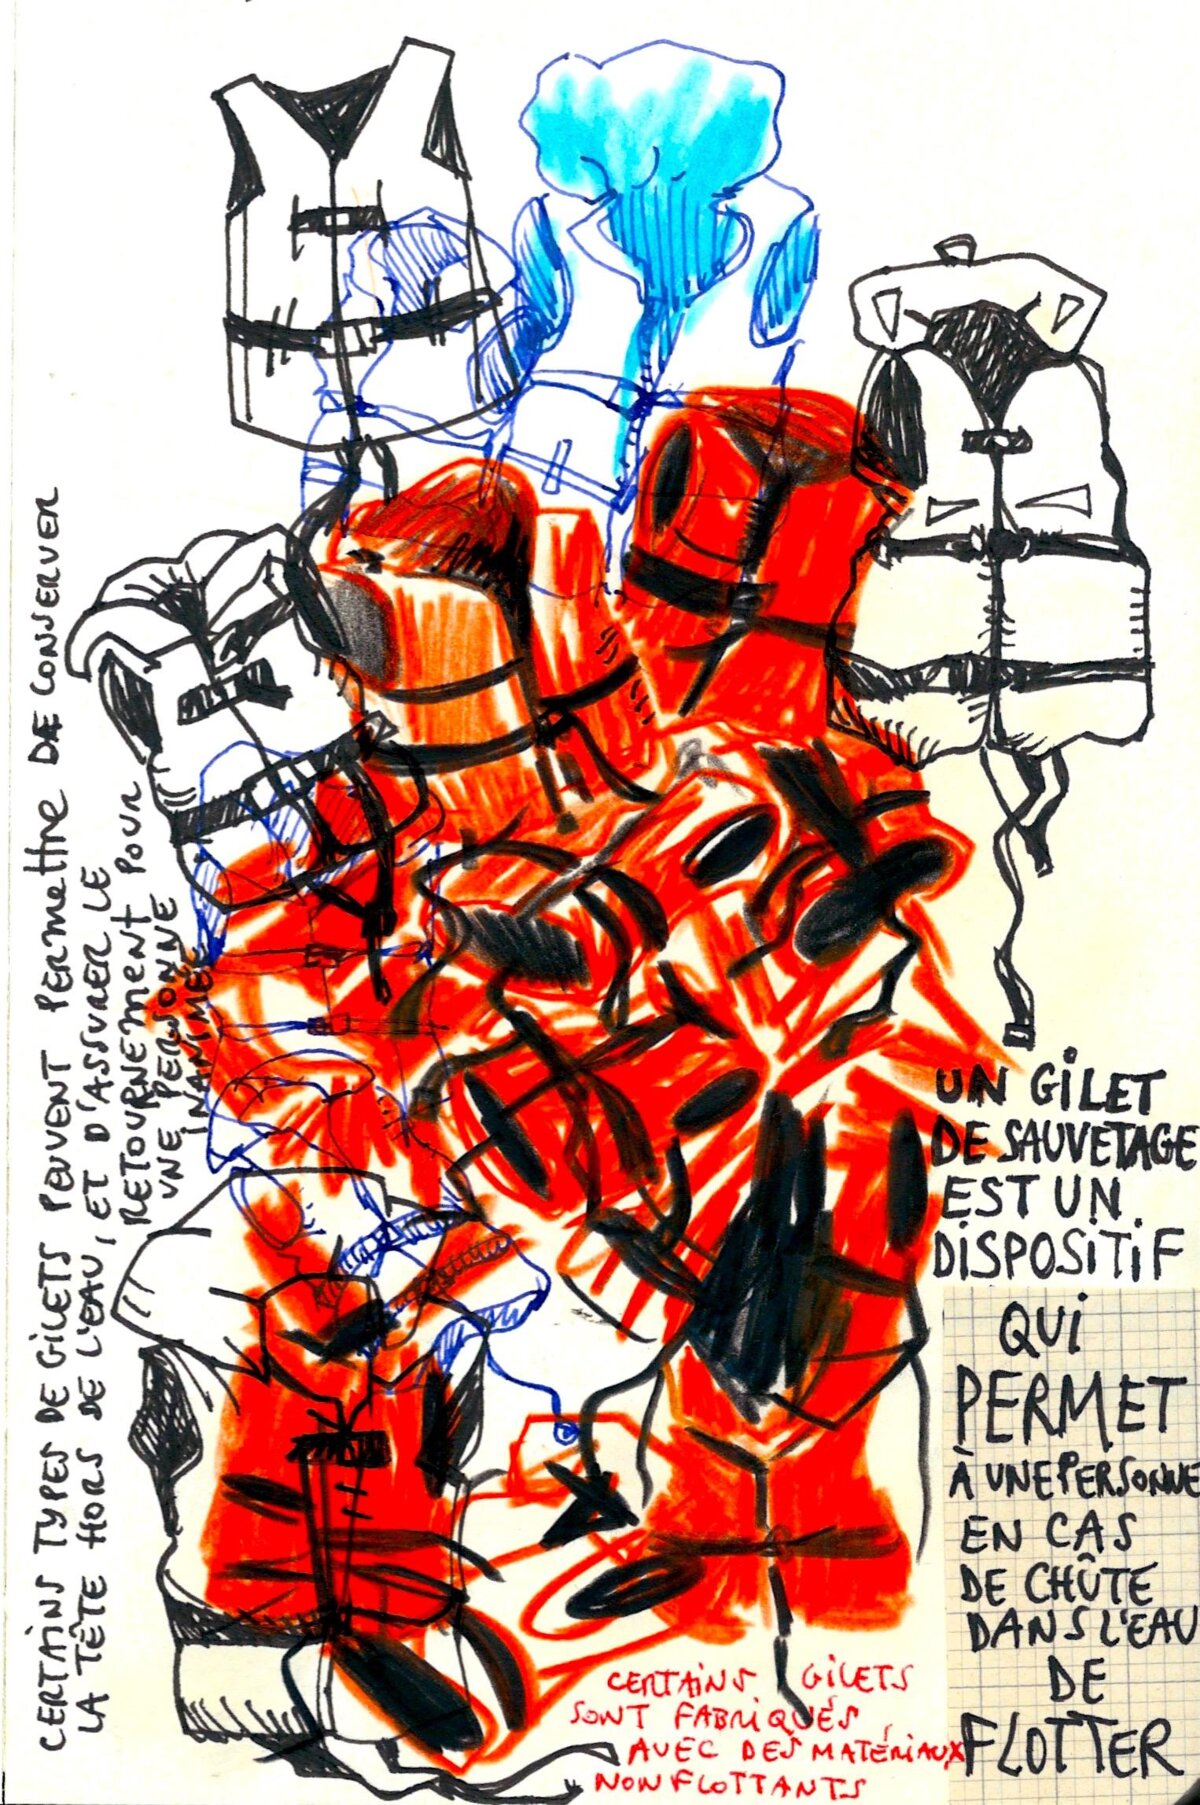 CERTAINS TYPES DE GILETS PEUVENT PERMETTRE DE CONSERVER
LA TÊTE HORS DE L'EAU, ET D'ASSURER LE
RETOURNEMENT POUR
UNE PERSONNE
INANIMÉE
UN GILET
DE SAUVETAGE
EST UN
DISPOSITIF
QUI
PERMET
À UNE PERSONNE
EN CAS
DE CHÛTE
DANS L'EAU
DE
FLOTTER
CERTAINS GILETS
SONT FABRIQUÉS
AVEC DES MATÉRIAUX
NON FLOTTANTS